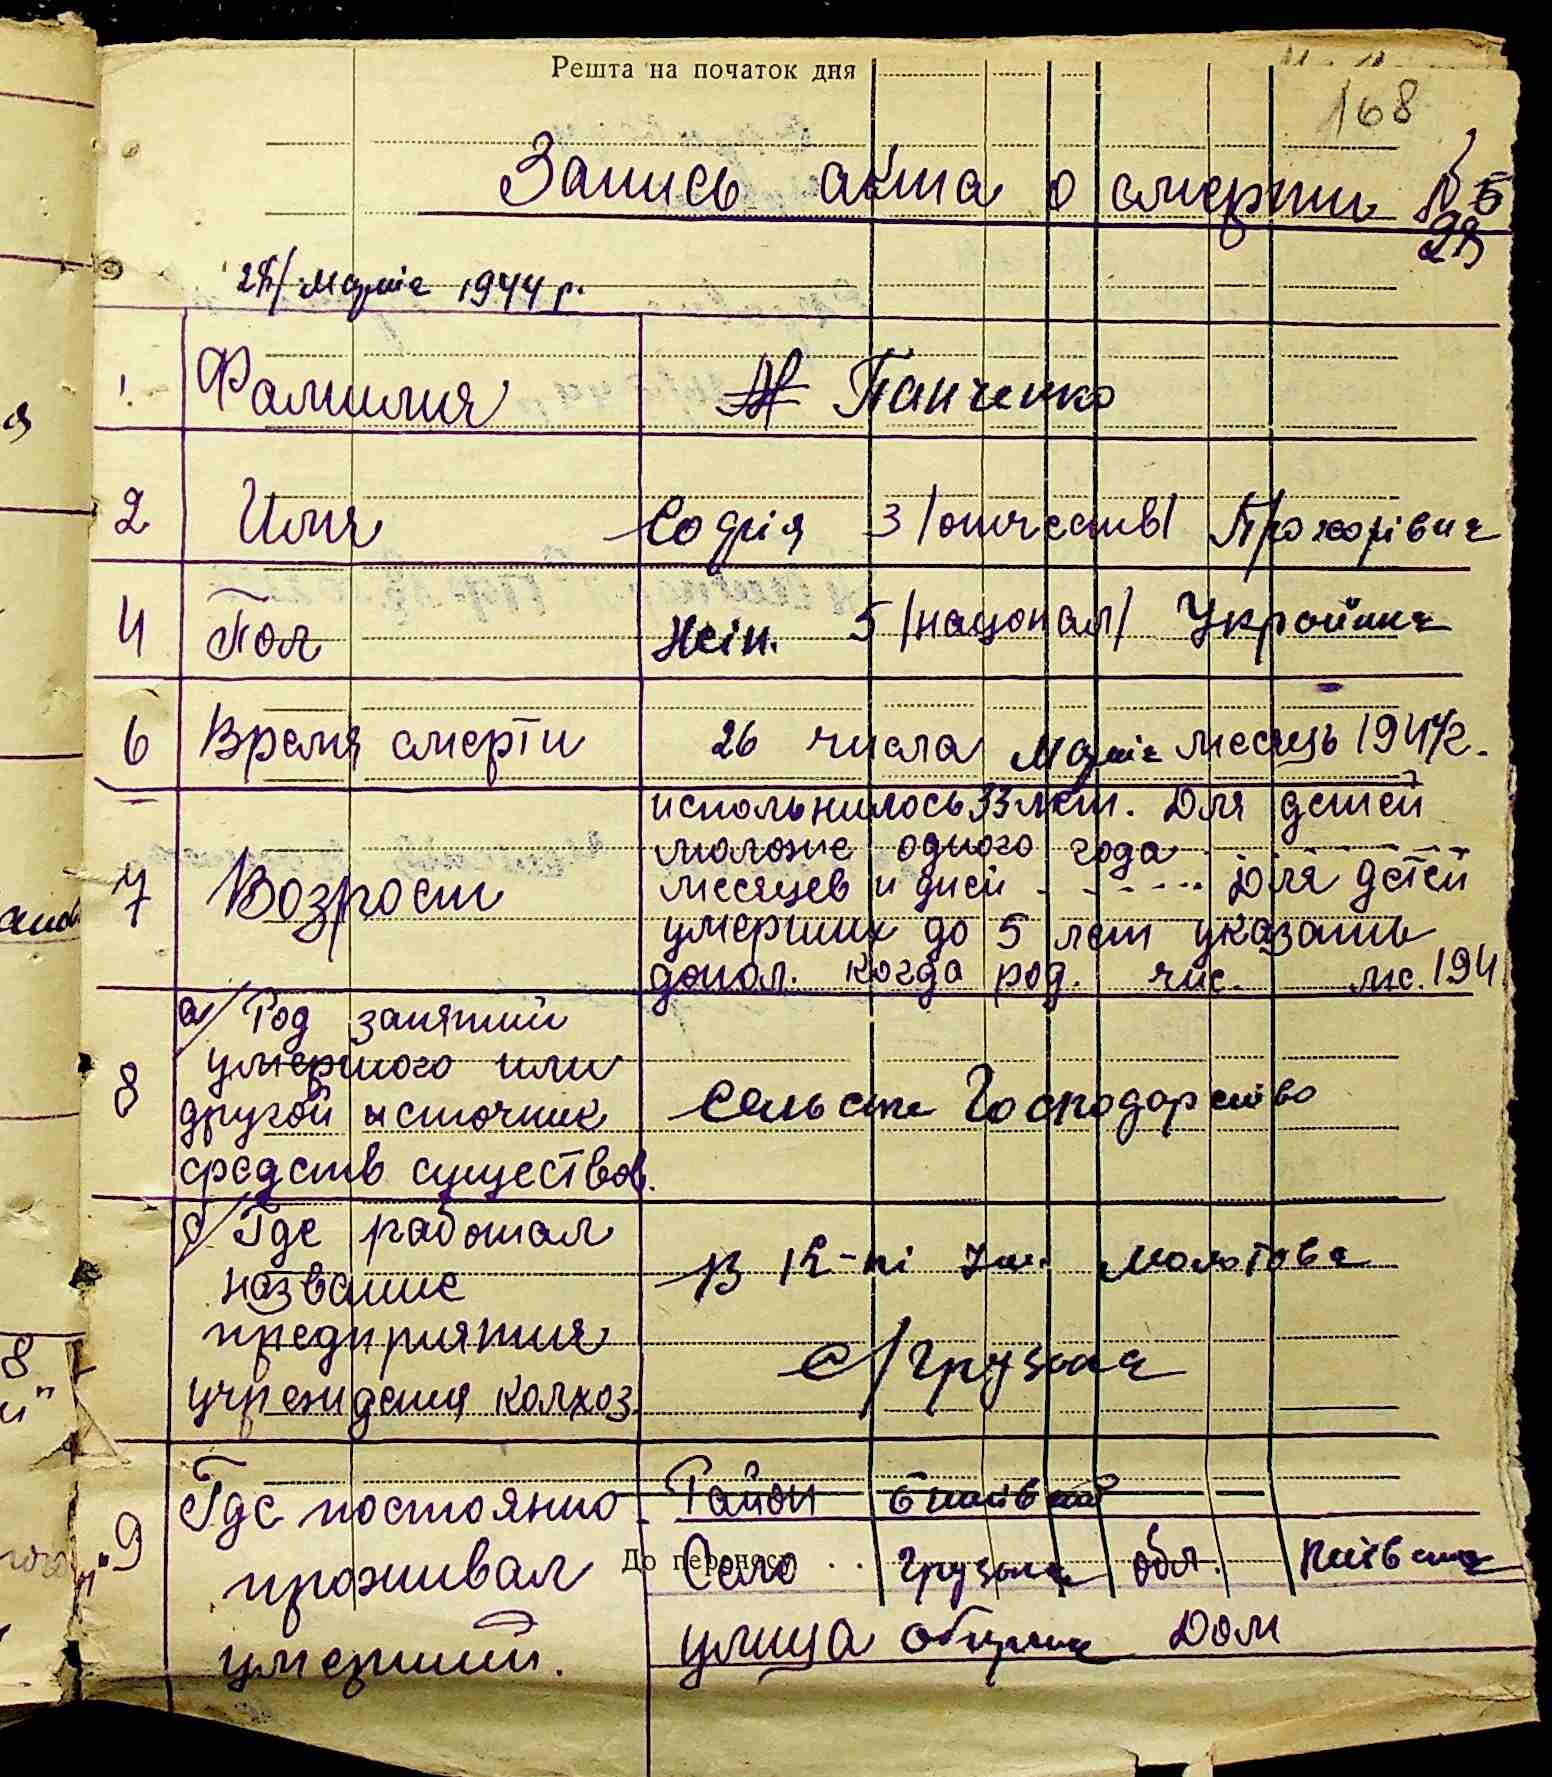 Решта на початок дня
168
Запись акта о смерти № 5
марта 1944 р.
1. Фамилия Панченко
2 Имя Софія 3 /отчеств/ Прохорівна
4 Пол Жін. 5 /национал/ Українка
6 Время смерти 26 числа марта месяць 1944 г.
7 Возрост
испольнилось 33 лет. Для детей
моложе одного года
месяцев и дней - - - - Для детей
умерших до 5 лет указать
допол. когда род. чис. мс. 194
8 а/ Род занятий
умершого или
другой источник
средств существов.
Сельске Господарство
б/ Где работал
название
предприятия
учреждения колхоз.
В К-пі Ім. Молотова
с/Грузьке
9 Где постоянно
проживал
умерший.
Район
До переносу
Село Грузьке обл. Київська
улица Дом